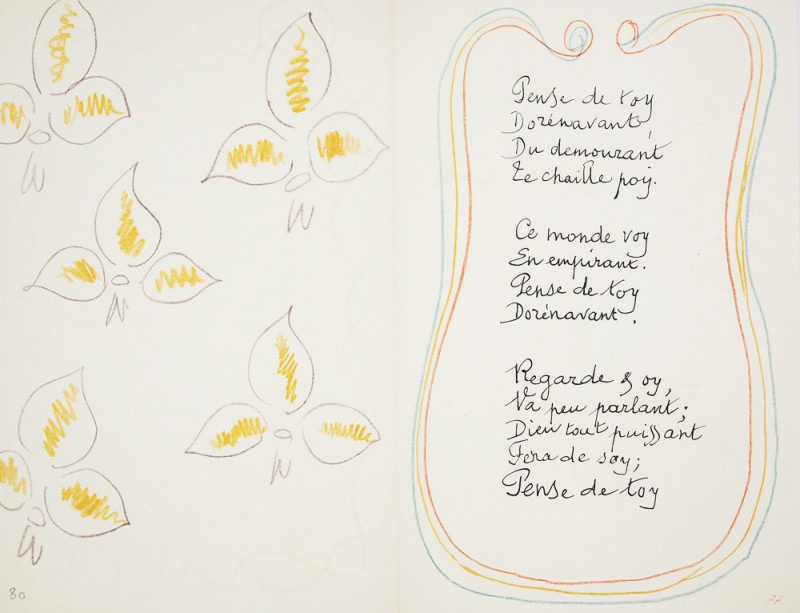 Pense de toy
Dorénavant,
Du demourant
Te chaille poy.
Ce monde voy
En empirant.
Pense de toy
Dorénavant.
Regarde & oy,
Va peu parlant;
Dieu tout puissant
Fera de soy;
Pense de toy
80